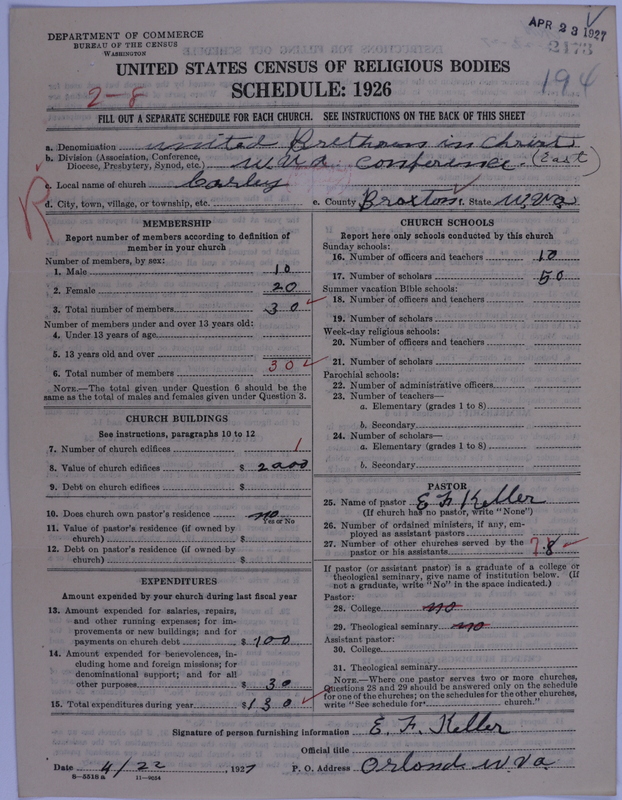 DEPARTMENT OF COMMERCE
BUREAU OF THE CENSUS
WASHINGTON
APR 23 1927
2173
194
UNITED STATES CENSUS OF RELIGIOUS BODIES
SCHEDULE: 1926
2-8
FILL OUT A SEPARATE SCHEDULE FOR EACH CHURCH. SEE INSTRUCTIONS ON THE BACK OF THIS SHEET
a. Denomination United Brethern in Christ
b. Division (Association, Conference, Diocese, Presbytery, Synod, etc.) W. Va. Conference. (East)
c. Local name of church Corley
d. City, town, village, or township, etc. e. County Braxton f. State W.Va
R
MEMBERSHIP
Report number of members according to definition of
member in your church
Number of members, by sex:
1. Male 10
2. Female 20
3. Total number of members 30
Number of members under and over 13 years old:
4. Under 13 years of age
5. 13 years old and over
6. Total number of members 30
NOTE.—The total given under Question 6 should be the
same as the total of males and females given under Question 3.
CHURCH BUILDINGS
See instructions, paragraphs 10 to 12
7. Number of church edifices 1
8. Value of church edifices $ 2000
9. Debt on church edifices $
10. Does church own pastor's residence no
Yes or No
11. Value of pastor's residence (if owned by
church) $
12. Debt on pastor's residence (if owned by
church) $
EXPENDITURES
Amount expended by your church during last fiscal year
13. Amount expended for salaries, repairs,
and other running expenses; for im-
provements or new buildings; and for
payments on church debt $ 100
14. Amount expended for benevolences, in-
cluding home and foreign missions; for
denominational support; and for all
other purposes $ 30
15. Total expenditures during year $ 130
CHURCH SCHOOLS
Report here only schools conducted by this church
Sunday schools:
16. Number of officers and teachers 10
17. Number of scholars 50
Summer vacation Bible schools:
18. Number of officers and teachers
19. Number of scholars
Week-day religious schools:
20. Number of officers and teachers
21. Number of scholars
Parochial schools:
22. Number of administrative officers
23. Number of teachers—
a. Elementary (grades 1 to 8)
b. Secondary
24. Number of scholars—
a. Elementary (grades 1 to 8)
b. Secondary
PASTOR
25. Name of pastor E F Keller
(If church has no pastor, write "None")
26. Number of ordained ministers, if any, em-
ployed as assistant pastors
27. Number of other churches served by the
pastor or his assistants 7 8
If pastor (or assistant pastor) is a graduate of a college or
theological seminary, give name of institution below. (If
not a graduate, write "No" in the space indicated.)
Pastor:
28. College no
29. Theological seminary no
Assistant pastor:
30. College
31. Theological seminary
NOTE.—Where one pastor serves two or more churches,
Questions 28 and 29 should be answered only on the schedule
for one of the churches; on the schedules for the other churches,
write "See schedule for church."
Signature of person furnishing information E. F. Keller
Official title
Date 4/22, 1927 P. O. Address Orlando W. Va
8—5518 a 11—9034